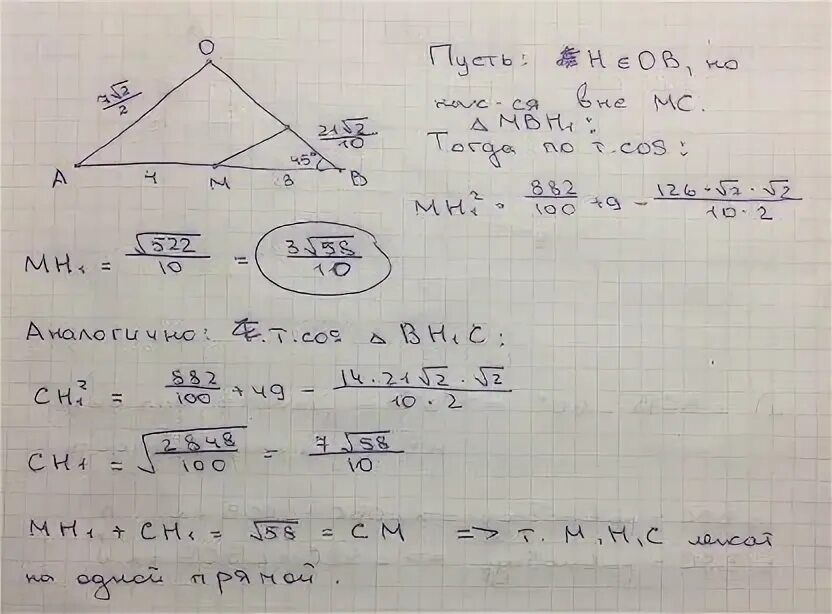 O
Пусть: H ∈ OB, но
нах-ся вне MC.
△ MBH₁:
Тогда по т.cos:
7√2/2
21√2/10
45°
A 4 M 3 B
MH₁² = 882/100 + 9 - 126·√2·√2/10·2
MH₁ = √522/10 = 3√58/10
Аналогично: т.cos △ BH₁C:
CH₁² = 882/100 + 49 - 14·21√2·√2/10·2
CH₁ = √2848/100 = 7√58/10
MH₁ + CH₁ = √58 = CM => т. M, H, C лежат
на одной прямой.